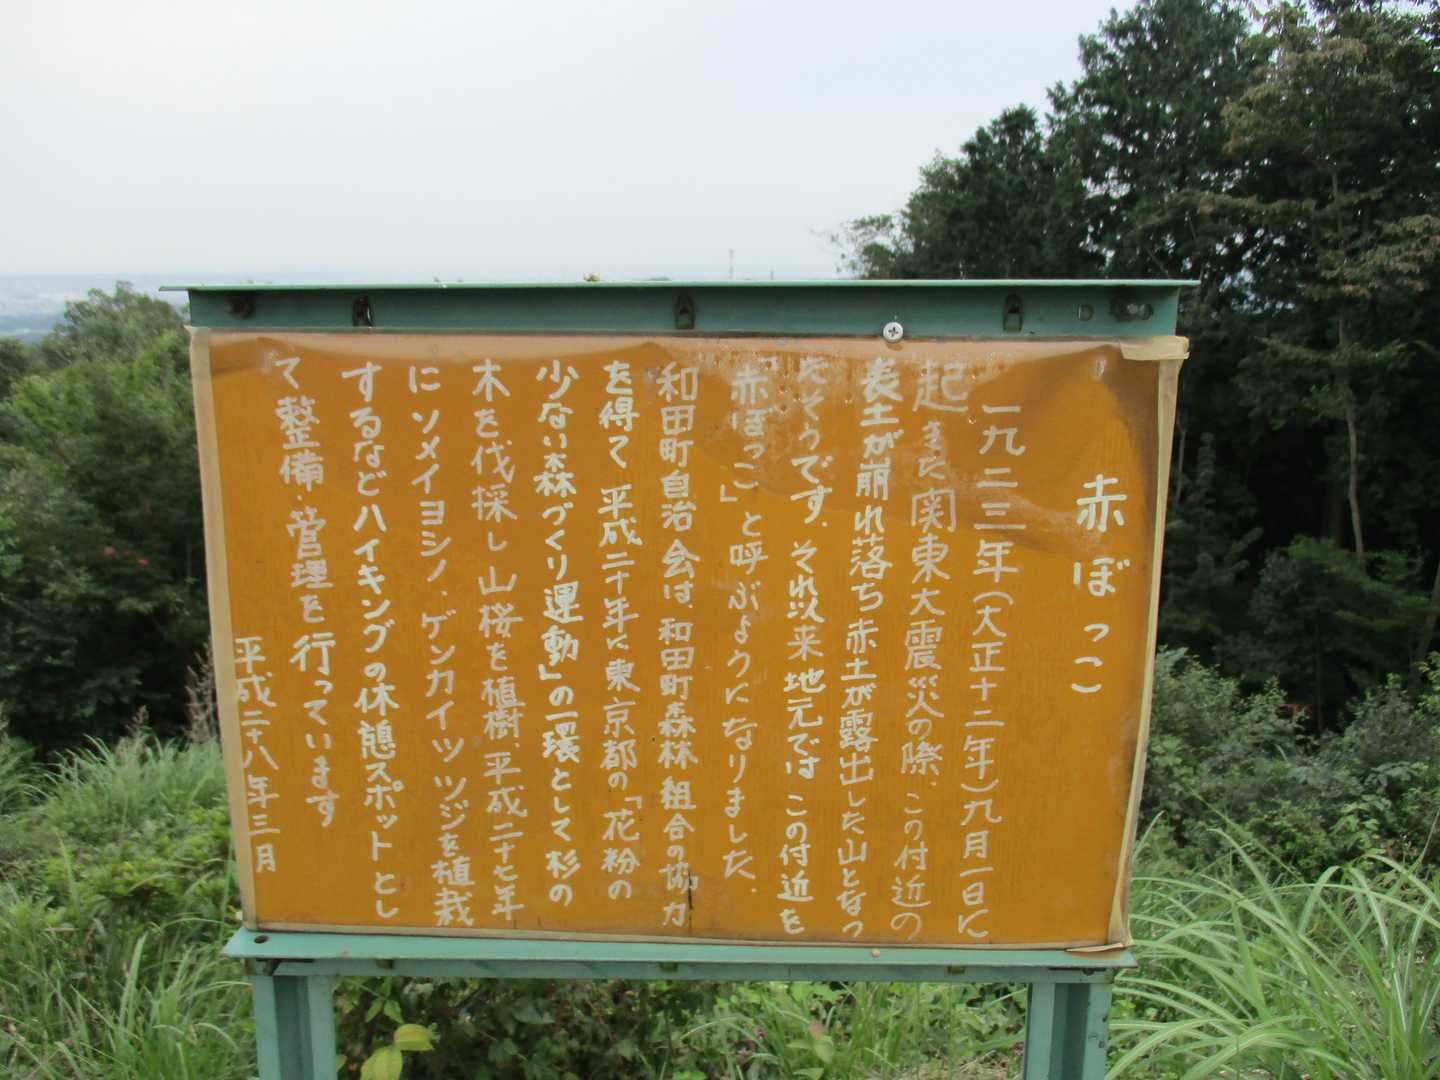 赤ぼっこ
一九二三年(大正十二年)九月一日に
起きた関東大震災の際、この付近の
表土が崩れ落ち赤土が露出した山となっ
たそうです。それ以来地元ではこの付近を
「赤ぼっこ」と呼ぶようになりました。
和田町自治会は、和田町森林組合の協力
を得て平成二十年に東京都の「花粉の
少ない森づくり運動」の一環として杉の
木を伐採し山桜を植樹、平成二十七年
にソメイヨシノ、ゲンカイツツジを植栽
するなどハイキングの休憩スポットとし
て整備・管理を行っています
平成二十八年三月